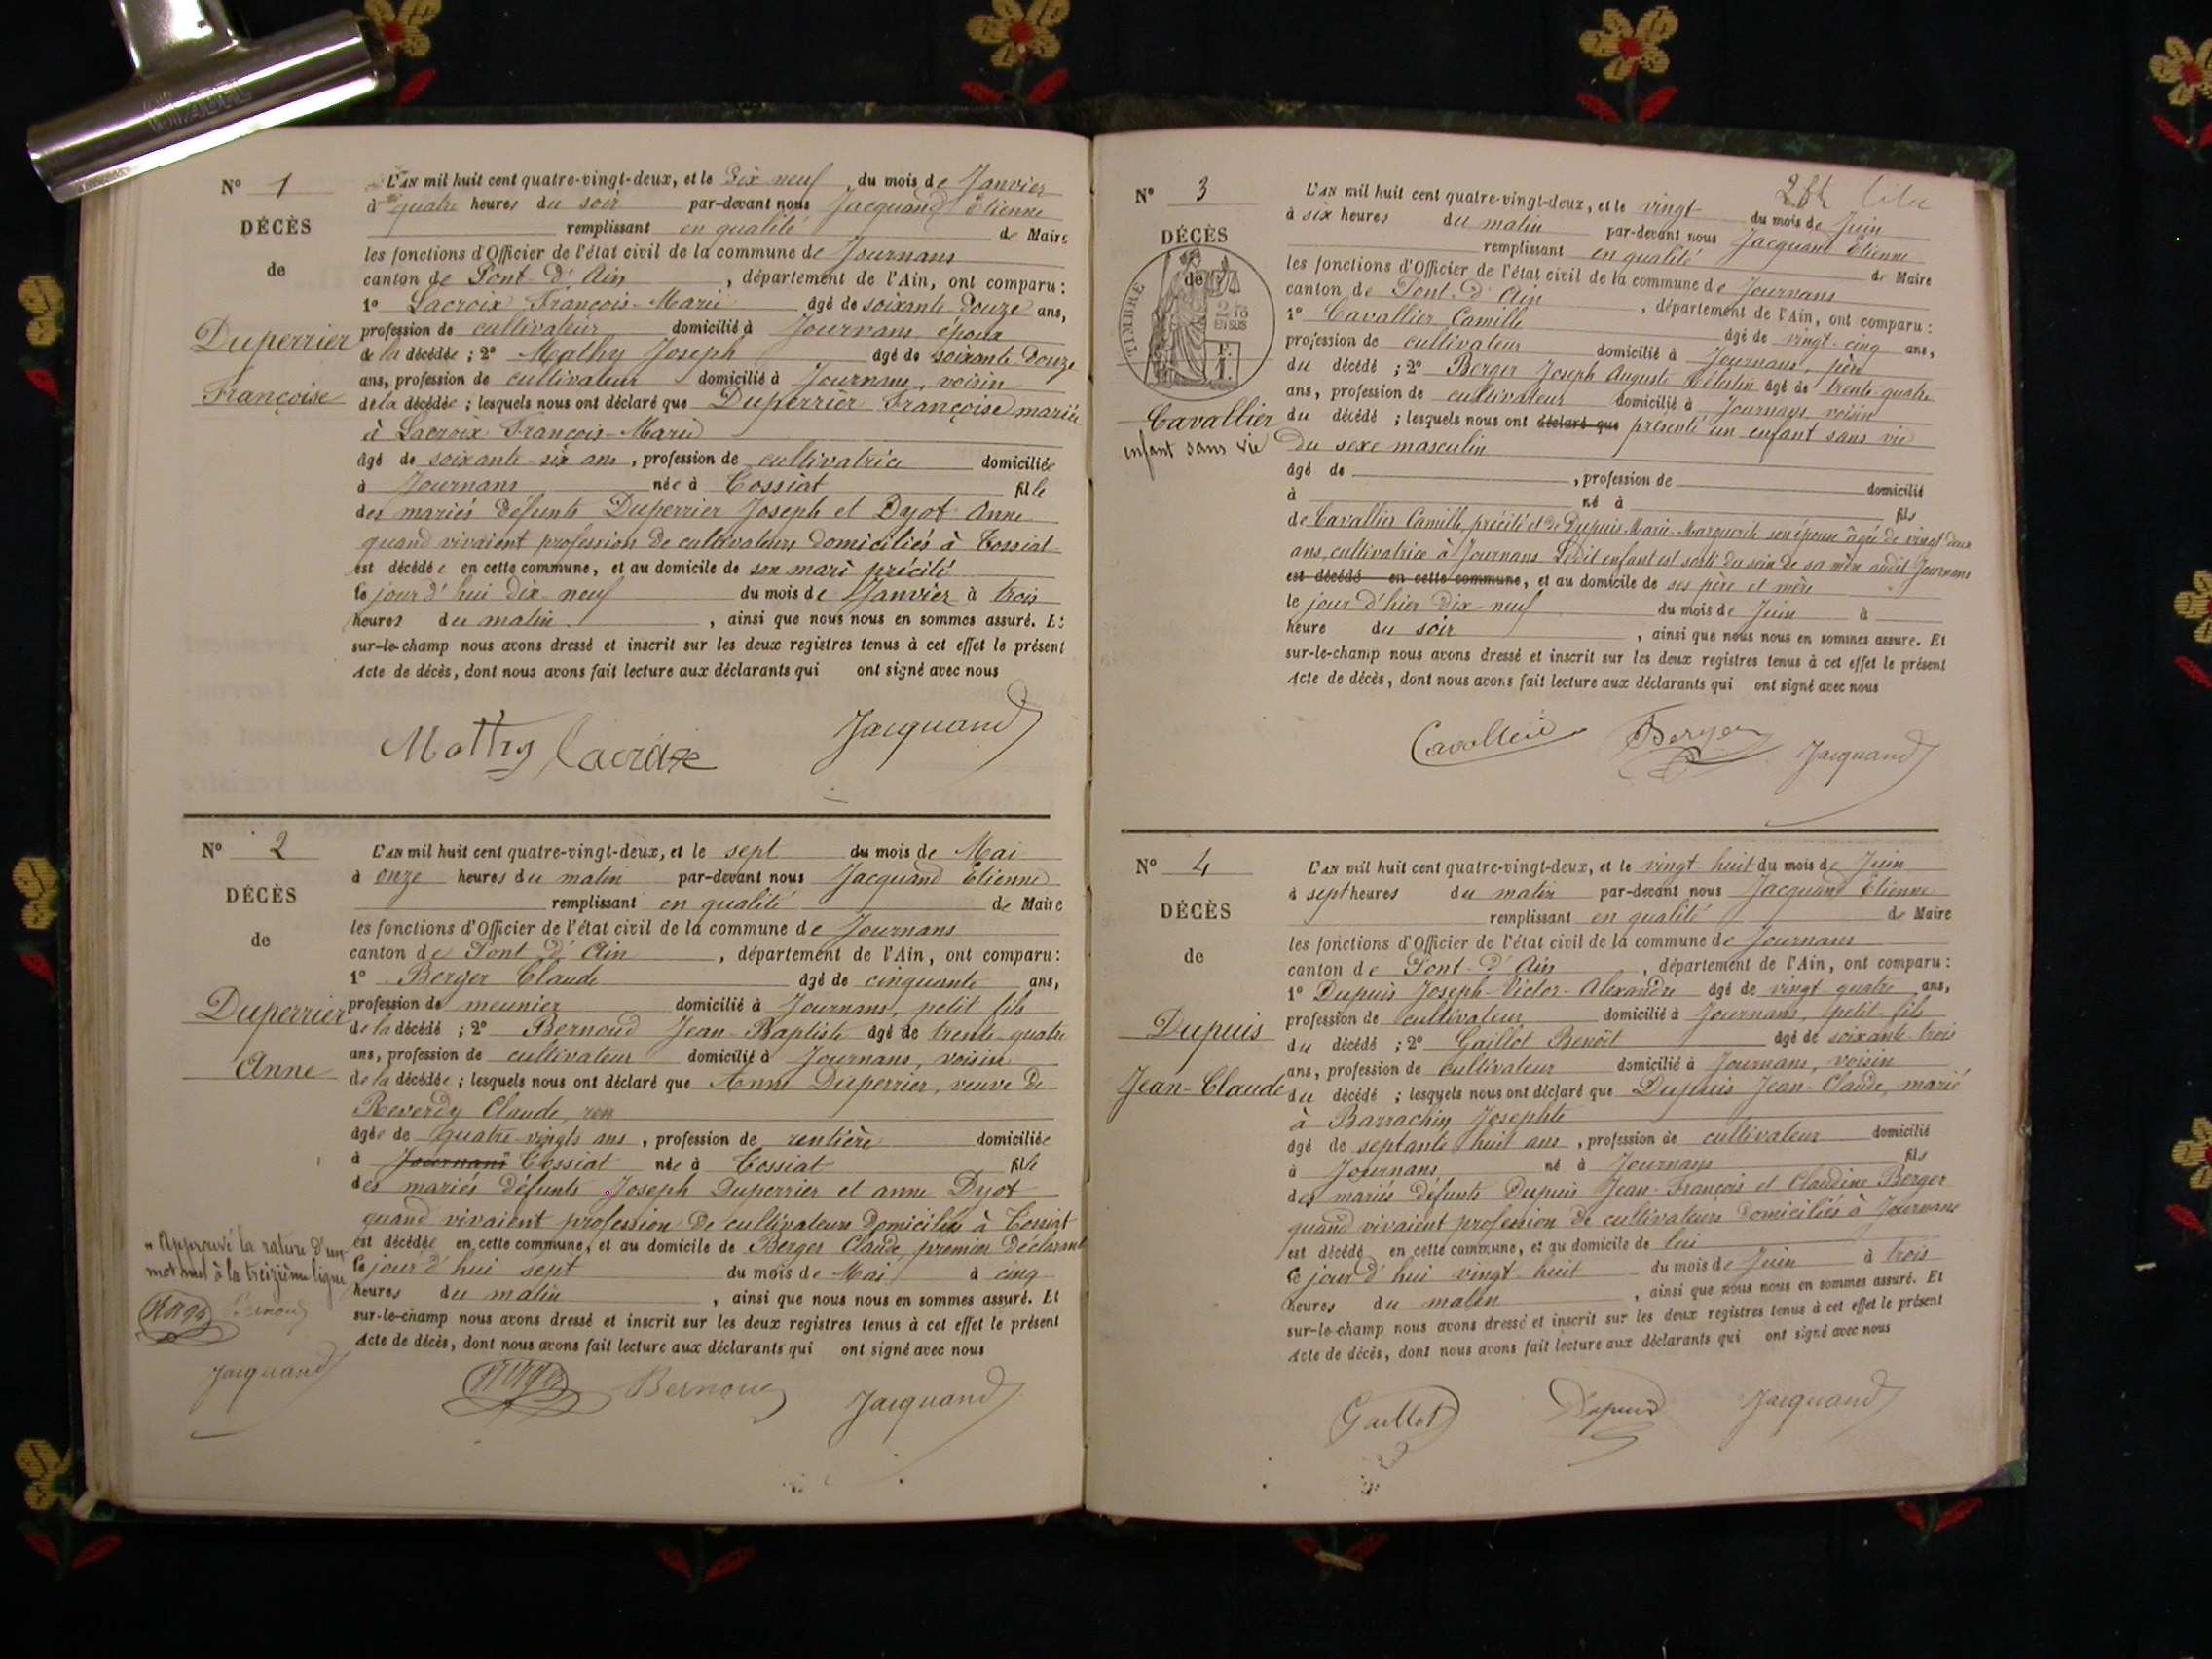 N° 1
DÉCÈS
de
Duperrier
Françoise
L'AN mil huit cent quatre-vingt-deux, et le Dix neuf du mois de Janvier
à quatre heures du soir par-devant nous Jacquand Etienne
remplissant en qualité de Maire
les fonctions d'Officier de l'état civil de la commune de Journans
canton de Pont d'Ain, département de l'Ain, ont comparu :
1° Lacroix François-Marie âgé de soixante-douze ans,
profession de cultivateur domicilié à Journans, époux
de la décédée ; 2° Mathy Joseph âgé de soixante-douze
ans, profession de cultivateur domicilié à Journans, voisin
de la décédée ; lesquels nous ont déclaré que Duperrier Françoise mariée
à Lacroix François-Marie
âgé de soixante-six ans, profession de cultivatrice domiciliée
à Journans née à Tossiat fille
des mariés défunts Duperrier Joseph et Dyot Anne
quand vivaient profession de cultivateurs domiciliés à Tossiat
est décédée en cette commune, et au domicile de son mari précité
le jour d'hui dix-neuf du mois de Janvier à trois
heures du matin, ainsi que nous nous en sommes assuré. Et
sur-le-champ nous avons dressé et inscrit sur les deux registres tenus à cet effet le présent
Acte de décès, dont nous avons fait lecture aux déclarants qui ont signé avec nous
Mathy Lacroix Jacquand
N° 2
DÉCÈS
de
Duperrier
Anne
L'AN mil huit cent quatre-vingt-deux, et le sept du mois de Mai
à onze heures du matin par-devant nous Jacquand Etienne
remplissant en qualité de Maire
les fonctions d'Officier de l'état civil de la commune de Journans
canton de Pont d'Ain, département de l'Ain, ont comparu :
1° Berger Claude âgé de cinquante ans,
profession de meunier domicilié à Journans, petit fils
de la décédé ; 2° Bernoud Jean-Baptiste âgé de trente-quatre
ans, profession de cultivateur domicilié à Journans, voisin
de la décédée ; lesquels nous ont déclaré que Anne Duperrier, veuve de
Reverdy Claude, ren
âgée de quatre-vingts ans, profession de rentière domiciliée
à Journans Tossiat née à Tossiat fille
des mariés défunts Joseph Duperrier et anne Dyot
quand vivaient profession de cultivateurs domiciliés à Tossiat
est décédée en cette commune, et au domicile de Berger Claude, premier Déclarant
le jour d'hui sept du mois de Mai à cinq
heures du matin, ainsi que nous nous en sommes assuré. Et
sur-le-champ nous avons dressé et inscrit sur les deux registres tenus à cet effet le présent
Acte de décès, dont nous avons fait lecture aux déclarants qui ont signé avec nous
Approuvé la rature d'un
mot nul à la treizième ligne
Berger Bernoud
Jacquand
Berger Bernoud Jacquand
N° 3
DÉCÈS
de
TIMBRE
Cavallier
enfant sans vie
L'AN mil huit cent quatre-vingt-deux, et le vingt du mois de Juin
à six heures du matin par-devant nous Jacquand Etienne
remplissant en qualité de Maire
les fonctions d'Officier de l'état civil de la commune de Journans
canton de Pont-d'Ain, département de l'Ain, ont comparu :
1° Cavallier Camille âgé de vingt-cinq ans,
profession de cultivateur domicilié à Journans, père
du décédé ; 2° Berger Joseph Auguste Célestin âgé de trente-quatre
ans, profession de cultivateur domicilié à Journans voisin
du décédé ; lesquels nous ont déclaré que présenté un enfant sans vie
du sexe masculin
âgé de, profession de domicilié
à né à fils
de Cavallier Camille précité et de Dupuis Marie-Marguerite son épouse âgée de vingt deux
ans, cultivatrice à Journans Ledit enfant est sorti du sein de sa mère audit Journans
est décédé en cette commune, et au domicile de ses père et mère
le jour d'hier dix-neuf du mois de Juin à
heure du soir, ainsi que nous nous en sommes assuré. Et
sur-le-champ nous avons dressé et inscrit sur les deux registres tenus à cet effet le présent
Acte de décès, dont nous avons fait lecture aux déclarants qui ont signé avec nous
Cavallier Berger Jacquand
N° 4
DÉCÈS
de
Dupuis
Jean-Claude
L'AN mil huit cent quatre-vingt-deux, et le vingt huit du mois de Juin
à sept heures du matin par-devant nous Jacquand Etienne
remplissant en qualité de Maire
les fonctions d'Officier de l'état civil de la commune de Journans
canton de Pont-d'Ain, département de l'Ain, ont comparu :
1° Dupuis Joseph-Victor-Alexandre âgé de vingt quatre ans,
profession de cultivateur domicilié à Journans, petit-fils
du décédé ; 2° Gaillot Benoît âgé de soixante-trois
ans, profession de cultivateur domicilié à Journans, voisin
du décédé ; lesquels nous ont déclaré que Dupuis Jean-Claude, marié
à Barrachin Josephte
âgé de septante huit ans, profession de cultivateur domicilié
à Journans né à Journans fils
des mariés défunts Dupuis Jean-François et Claudine Berger
quand vivaient profession de cultivateurs domiciliés à Journans
est décédé en cette commune, et au domicile de lui
le jour d'hui vingt-huit du mois de Juin à trois
heures du matin, ainsi que nous nous en sommes assuré. Et
sur-le-champ nous avons dressé et inscrit sur les deux registres tenus à cet effet le présent
Acte de décès, dont nous avons fait lecture aux déclarants qui ont signé avec nous
Gaillot Dupuis Jacquand